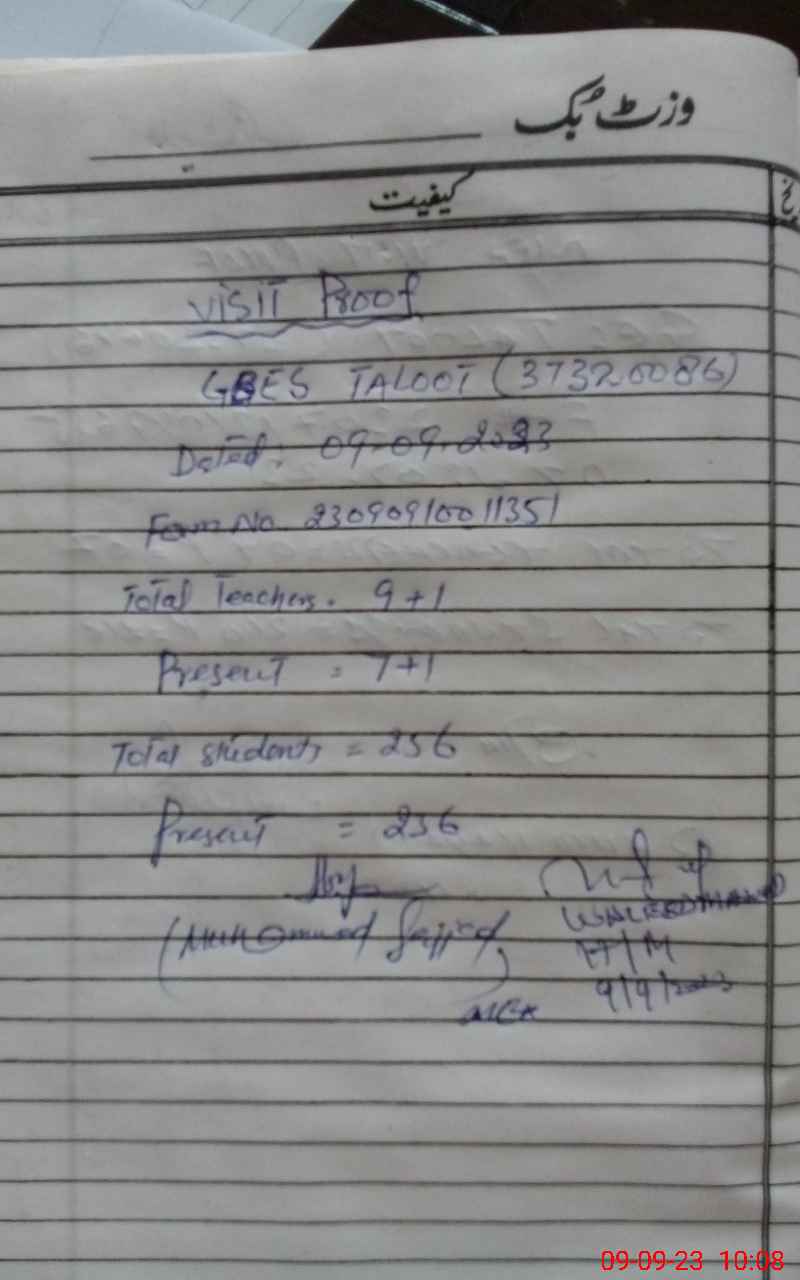 وزٹ بُک
کیفیت
VISIT Proof
GBES TALOOT (37320086)
Dated: 09-09-2023
Form No. 23090910011351
Total Teachers. 9+1
Present = 7+1
Total students = 256
Present = 236
(Muhammad Sajjad)
MEA
H/M
9/9/2023
09-09-23 10:08